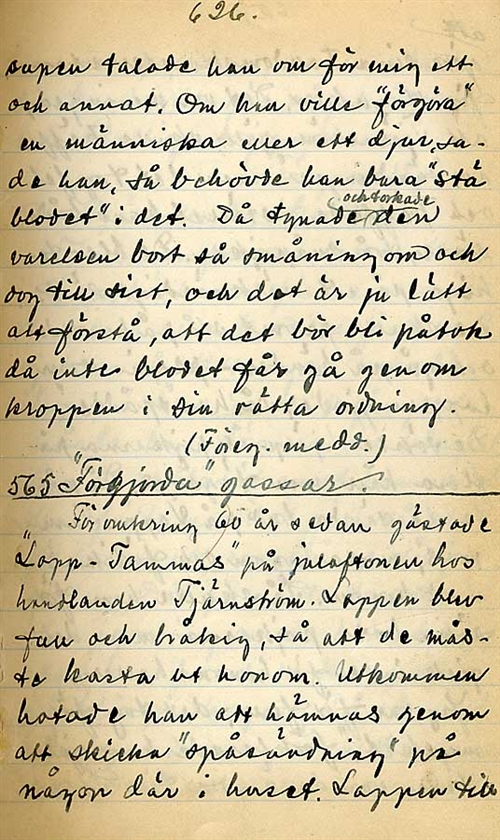 626.
supen talade han om för mig ett
och annat. Om han ville "förgöra"
en människa eller ett djur, sa-
de han, så behövde han bara "stå
och torkade
blodet" i det. Då tynade den
varelsen bort så småningom och
dog till sist, och det är ju lätt
att förstå, att det bör bli på tok
då inte blodet får gå genom
kroppen i sin rätta ordning.
(Föreg. medd.)
565 "Förgjorda" gossar.
För omkring 60 år sedan gästade
"Lapp-Tammas" på julaftonen hos
handlanden Tjärnström. Lappen blev
full och bråkig, så att de mås-
te kasta ut honom. Utkommen
hotade han att hämnas genom
att skicka "spåsändning" på
någon där i huset. Lappen till